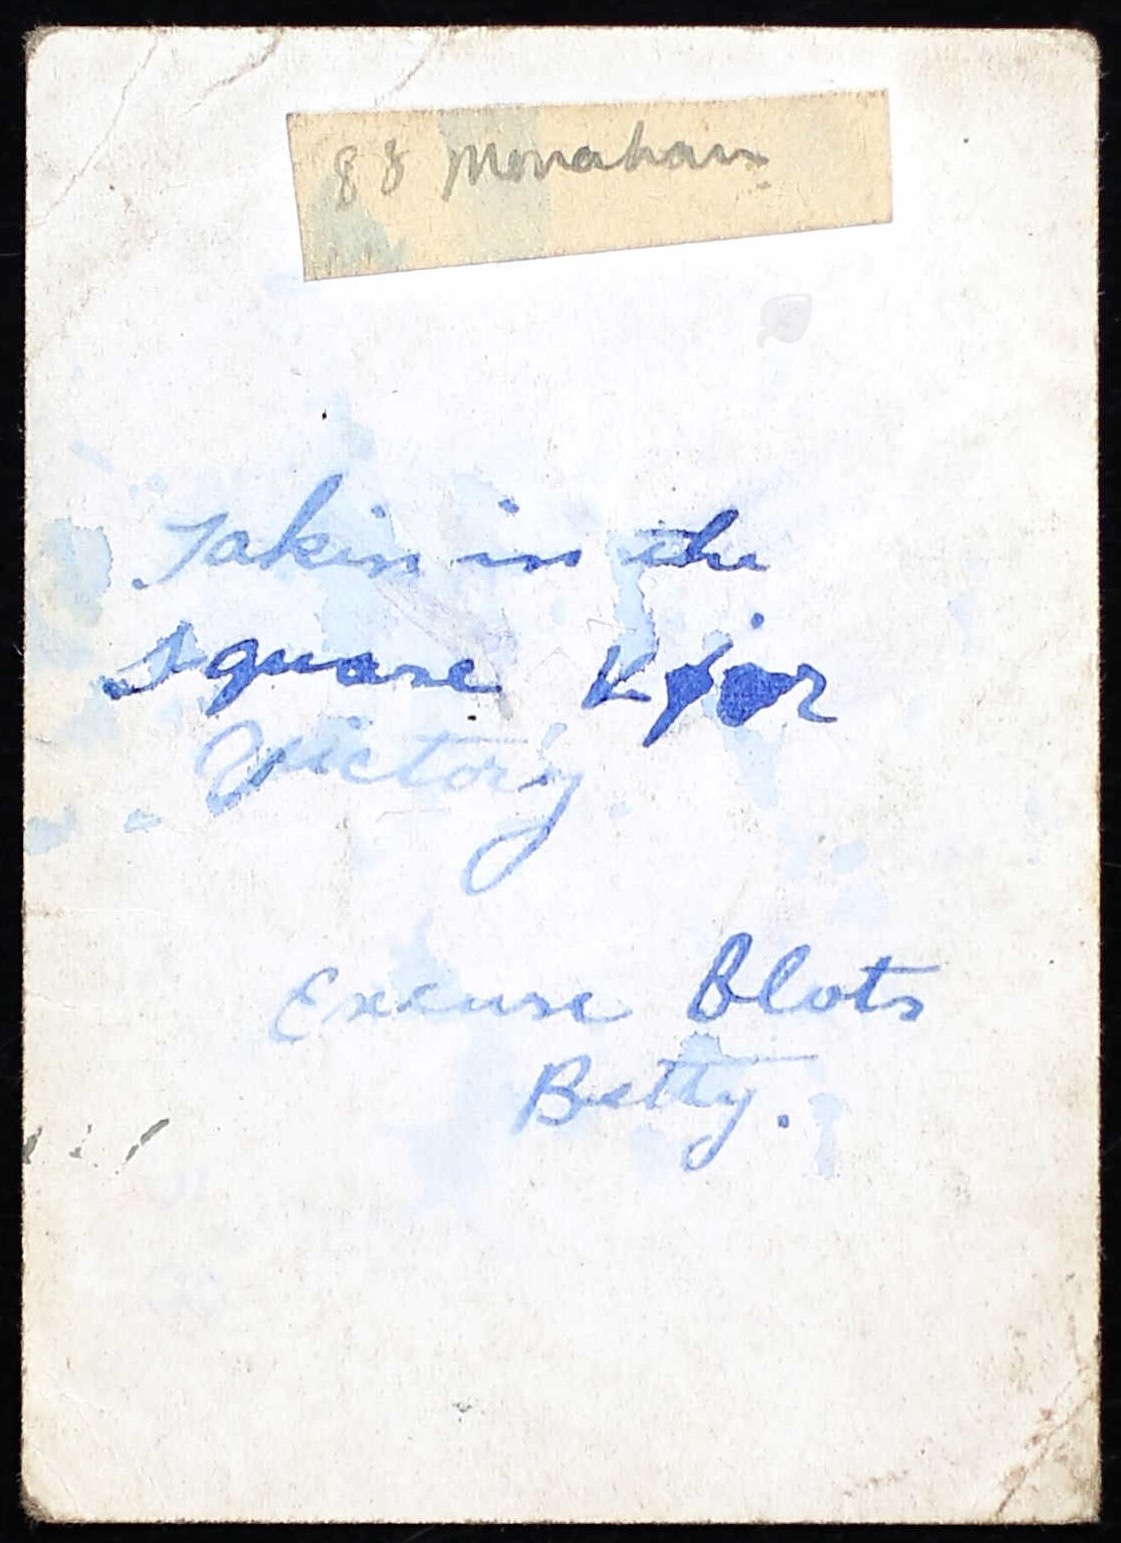 88 Monahan
Taken in the
square V for
Victory
Excuse Blots
Betty.